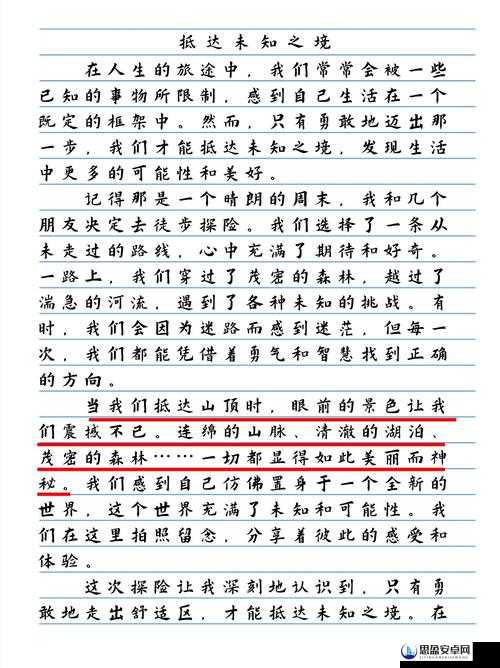 抵达未知之境
在人生的旅途中，我们常常会被一些
已知的事物所限制，感到自己生活在一个
既定的框架中。然而，只有勇敢地迈出那
一步，我们才能抵达未知之境，发现生活
中更多的可能性和美好。
记得那是一个晴朗的周末，我和几个
朋友决定去徒步探险。我们选择了一条从
未走过的路线，心中充满了期待和好奇。
一路上，我们穿过了茂密的森林，越过了
湍急的河流，遇到了各种未知的挑战。有
时，我们会因为迷路而感到迷茫，但每一
次，我们都能凭借着勇气和智慧找到正确
的方向。
当我们抵达山顶时，眼前的景色让我
们震撼不已。连绵的山脉、清澈的湖泊、
茂密的森林……一切都显得如此美丽而神
秘。我们感到自己仿佛置身于一个全新的
世界，这个世界充满了未知和可能性。我
们在这里拍照留念，分享着彼此的感受和
体验。
这次探险让我深刻地认识到，只有勇
敢地走出舒适区，才能抵达未知之境。在
思盈安卓网